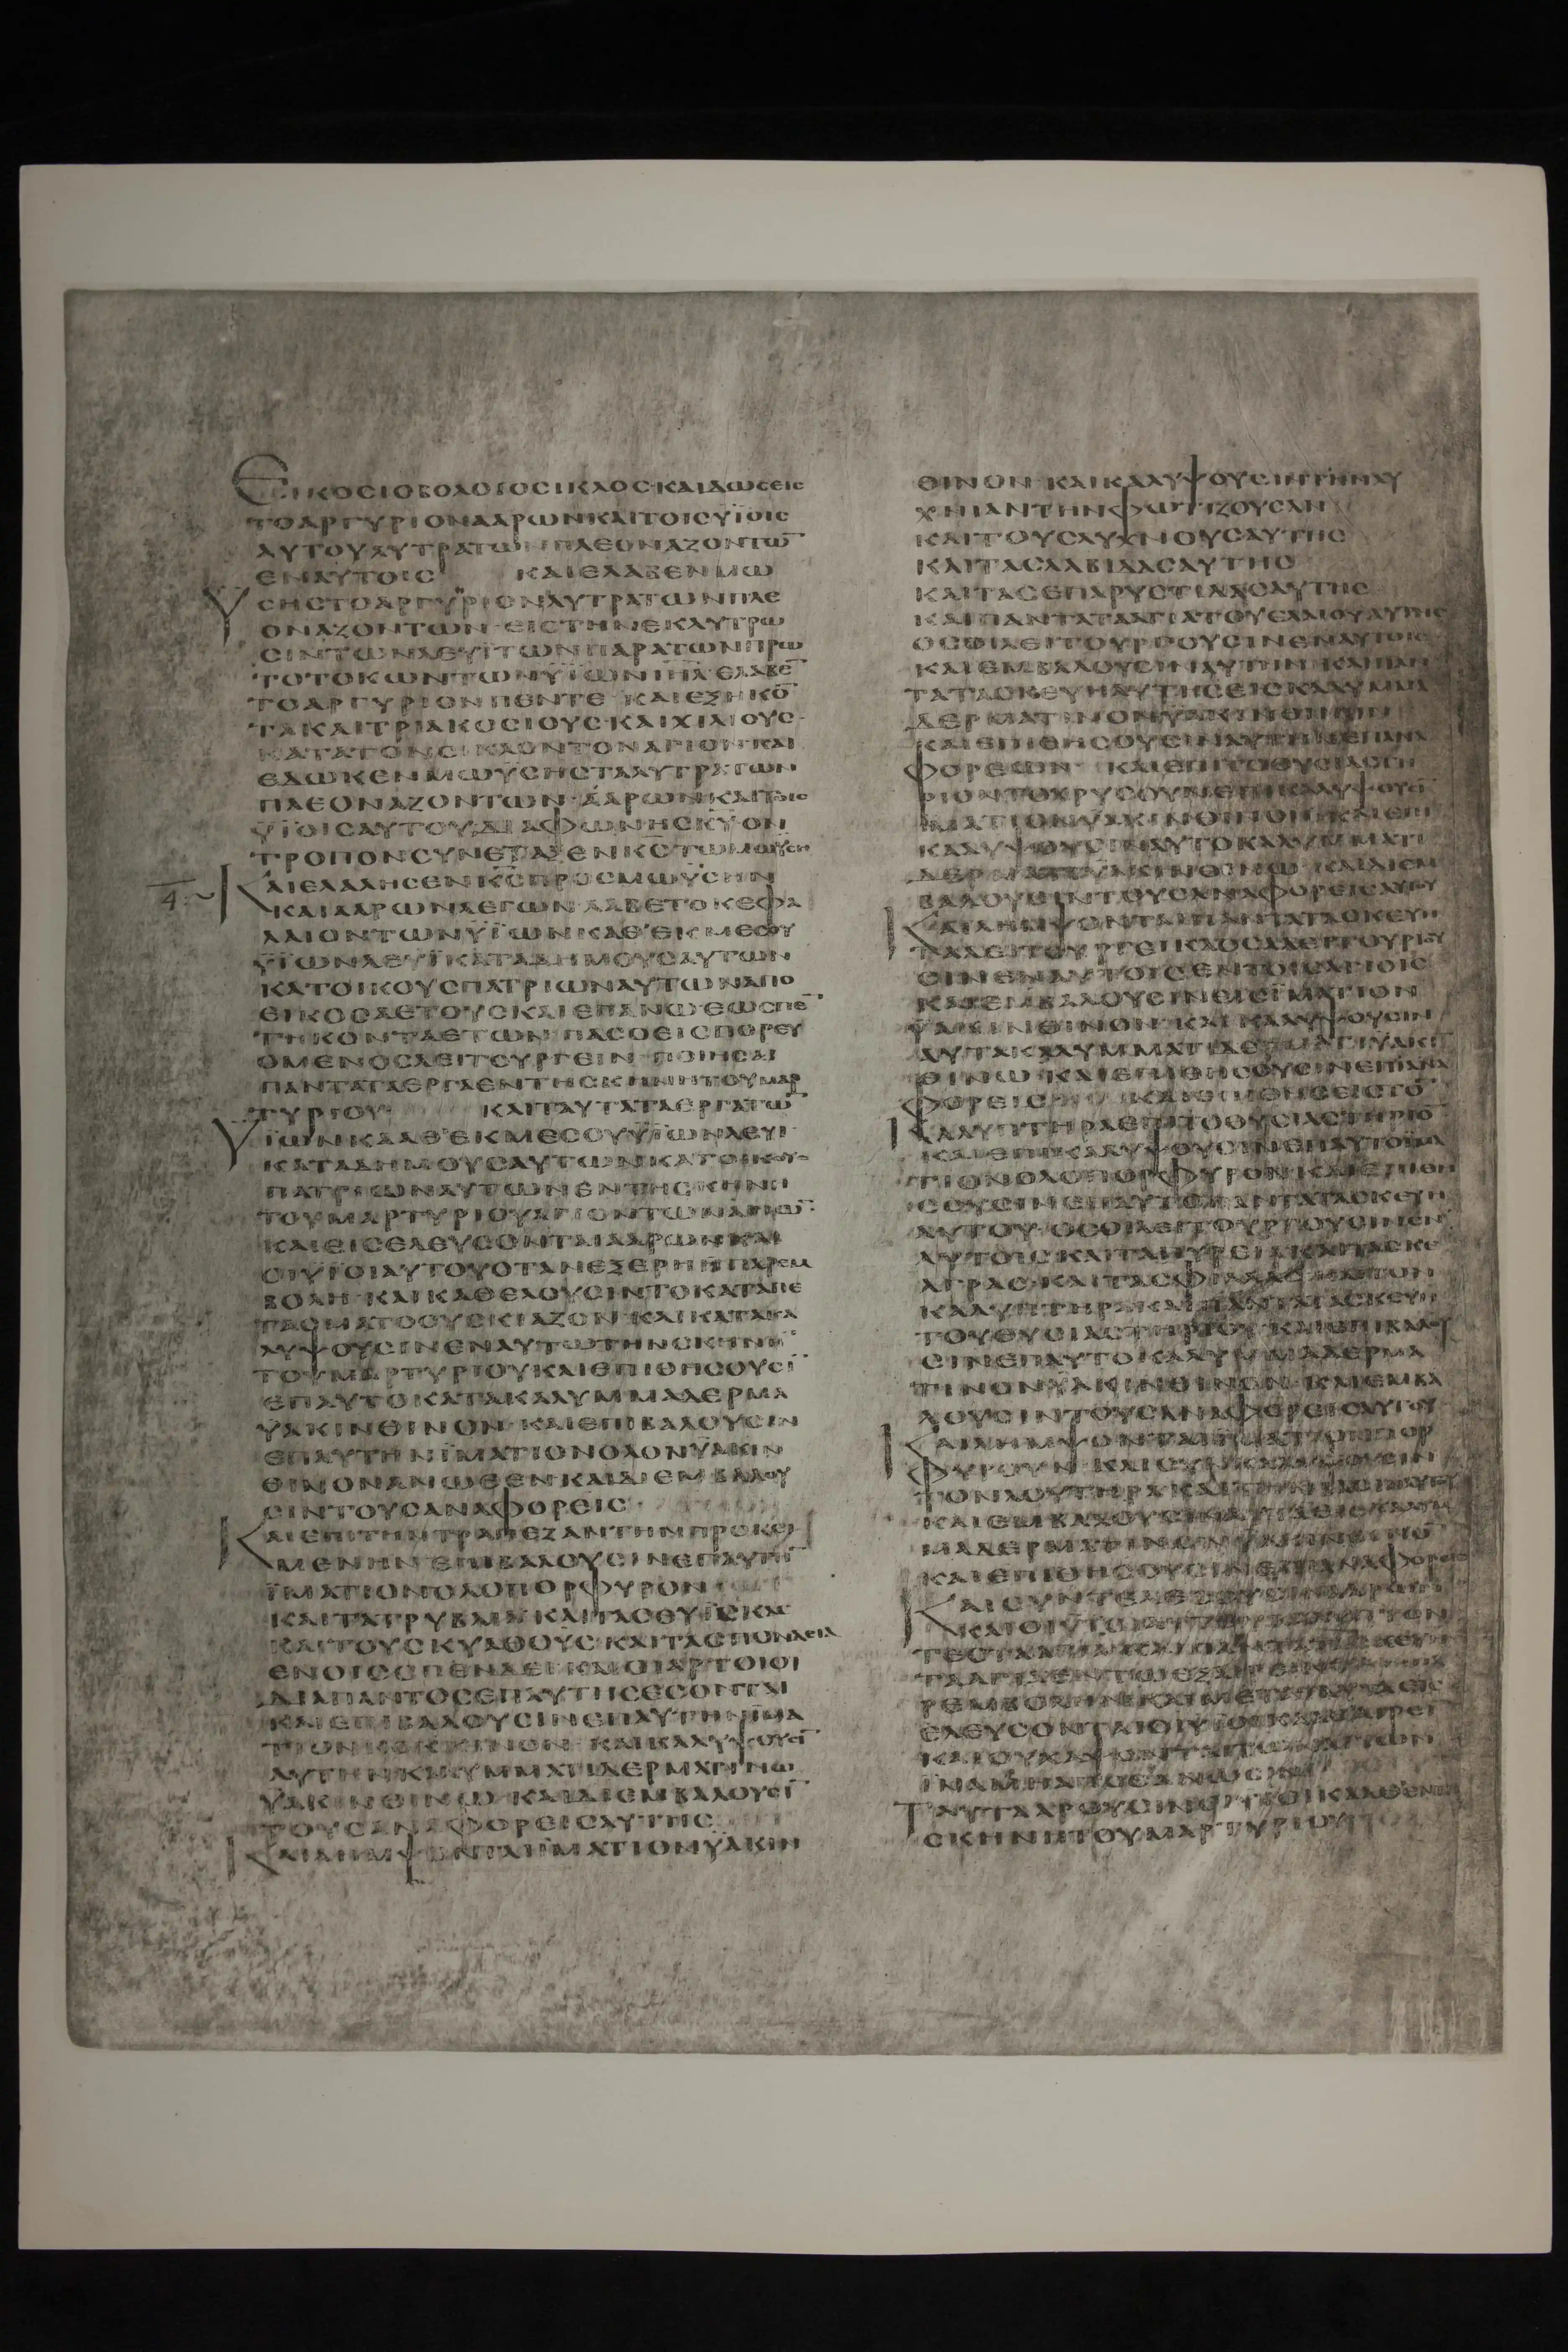 ЄΙΚΟCΙΟΒΟΛΟΥCΟCΙΚΛΟC·ΚΑΙΔΩCΕΙC
ΤΟΑΡΓΥΡΙΟΝΑΑΡΩΝΚΑΙΤΟΙCΥΪΟΙC
ΑΥΤΟΥΛΥΤΡΑΤΩΝΠΛΕΟΝΑΖΟΝΤΩ̅
ΕΝΑΥΤΟΙC ΚΑΙΕΛΑΒΕΝΜΩ
ΥCΗCΤΟΑΡΓΥΡΙΟΝΛΥΤΡΑΤΩΝΠΛΕ
ΟΝΑΖΟΝΤΩΝ·ΕΙCΤΗΝΕΚΛΥΤΡΩ
CΙΝΤΩΝΛΕΥΪΤΩΝΠΑΡΑΤΩΝΠΡΩ
ΤΟΤΟΚΩΝΤΩΝΥΪΩΝΙΗΛ·ΕΛΑΒΕ̅
ΤΟΑΡΓΥΡΙΟΝΠΕΝΤΕ ΚΑΙΕΞΗΚΟ̅
ΤΑΚΑΙΤΡΙΑΚΟCΙΟΥC·ΚΑΙΧΙΛΙΟΥC·
ΚΑΤΑΤΟΝCΙΚΛΟΝΤΟΝΑΓΙΟΝ·ΚΑΙ
ΕΔΩΚΕΝΜΩΥCΗCΤΑΛΥΤΡΑΤΩΝ
ΠΛΕΟΝΑΖΟΝΤΩΝ·ΑΑΡΩΝΚΑΙΤΟΙC
ΥΪΟΙCΑΥΤΟΥ·ΔΙΑΦΩΝΗCΚΥ̅ΟΝ
ΤΡΟΠΟΝCΥΝΕΤΑΞΕΝΚ̅C̅ΤΩΜΩΥCΗ
4:~
ΚΑΙΕΛΑΛΗCΕΝΚ̅C̅ΠΡΟCΜΩΥCΗΝ
ΚΑΙΑΑΡΩΝΛΕΓΩΝ·ΛΑΒΕΤΟΚΕΦΑ
ΛΑΙΟΝΤΩΝΥΪΩΝΚΑΘ'ΕΚΜΕCΟΥ
ΥΪΩΝΛΕΥΪΚΑΤΑΔΗΜΟΥCΑΥΤΩΝ
ΚΑΤΟΙΚΟΥCΠΑΤΡΙΩΝΑΥΤΩΝΑΠΟ
ΕΙΚΟCΑΕΤΟΥCΚΑΙΕΠΑΝΩΕΩCΠΕ̅
ΤΗΚΟΝΤΑΕΤΩΝ ΠΑCΟΕΙCΠΟΡΕΥ
ΟΜΕΝΟCΛΕΙΤΟΥΡΓΕΙΝ·ΠΟΙΗCΑΙ
ΠΑΝΤΑΤΑΕΡΓΑΕΝΤΗCΚΗΝΗΤΟΥΜΑΡ
ΤΥΡΙΟΥ ΚΑΙΤΑΥΤΑΤΑΕΡΓΑΤΩ̅
ΥΪΩΝΚΑΑΘ'ΕΚΜΕCΟΥΥΪΩΝΛΕΥΙ·
ΚΑΤΑΔΗΜΟΥCΑΥΤΩΝΚΑΤΟΙΚΟΥC
ΠΑΤΡΙΩΝΑΥΤΩΝΕΝΤΗCΚΗΝΗ
ΤΟΥΜΑΡΤΥΡΙΟΥΑΓΙΟΝΤΩΝΑΓΙΩ̅·
ΚΑΙΕΙCΕΛΕΥCΟΝΤΑΙΑΑΡΩΝΚΑΙ
ΟΙΥΪΟΙΑΥΤΟΥΟΤΑΝΕΞΕΡΗΗΠΑΡΕΜ
ΒΟΛΗ·ΚΑΙΚΑΘΕΛΟΥCΙΝΤΟΚΑΤΑΠΕ
ΤΑCΜΑΤΟCΥCΚΙΑΖΟΝ·ΚΑΙΚΑΤΑΚΑ
ΛΥΨΟΥCΙΝΕΝΑΥΤΩΤΗΝCΚΗΝΗ̅
ΤΟΥΜΑΡΤΥΡΙΟΥΚΑΙΕΠΙΘΗCΟΥCΙ̅
ΕΠΑΥΤΟΚΑΤΑΚΑΛΥΜΜΑΔΕΡΜΑ
ΥΑΚΙΝΘΙΝΟΝ·ΚΑΙΕΠΙΒΑΛΟΥCΙΝ
ΕΠΑΥΤΗΝΪΜΑΤΙΟΝΟΛΟΝΫΑΚΙΝ
ΘΙΝΟΝΑΝΩΘΕΝΚΑΙΔΙΕΜΒΑΛΟΥ
CΙΝΤΟΥCΑΝΑΦΟΡΕΙC
ΚΑΙΕΠΙΤΗΝΤΡΑΠΕΖΑΝΤΗΝΠΡΟΚΕΙ
ΜΕΝΗΝΕΠΙΒΑΛΟΥCΙΝΕΠΑΥΤΗ̅
ΪΜΑΤΙΟΝΟΛΟΠΟΡΦΥΡΟΝ
ΚΑΙΤΑΤΡΥΒΛΙΑΚΑΙΤΑCΘΥΪCΚΑC
ΚΑΙΤΟΥCΚΥΑΘΟΥC·ΚΑΙΤΑCΠΟΝΔΕΙΑ
ΕΝΟΙCCΠΕΝΔΕΙ·ΚΑΙΟΙΑΡΤΟΙΟΙ
ΔΙΑΠΑΝΤΟCΕΠΑΥΤΗCΕCΟΝΤΑΙ
ΚΑΙΕΠΙΒΑΛΟΥCΙΝΕΠΑΥΤΗΝΪΜΑ
ΤΙΟΝΚΟΚΚΙΝΟΝ·ΚΑΙΚΑΛΥΨΟΥCΙ̅
ΑΥΤΗΝΚΑΛΥΜΜΑΤΙΔΕΡΜΑΤΙΝΩ
ΥΑΚΙΝΘΙΝΩ·ΚΑΙΔΙΕΜΒΑΛΟΥCΙ̅
ΤΟΥCΑΝΑΦΟΡΕΙCΑΥΤΗC
ΚΑΙΛΗΜΨΟΝΤΑΙΪΜΑΤΙΟΝΫΑΚΙΝ
ΘΙΝΟΝ·ΚΑΙΚΑΛΥΨΟΥCΙΝΤΗΝΛΥ
ΧΝΙΑΝΤΗΝΦΩΤΙΖΟΥCΑΝ
ΚΑΙΤΟΥCΛΥΧΝΟΥCΑΥΤΗC
ΚΑΙΤΑCΛΑΒΙΔΑCΑΥΤΗC
ΚΑΙΤΑCΕΠΑΡΥCΤΙΔΑCΑΥΤΗC
ΚΑΙΠΑΝΤΑΤΑΑΓΓΙΑΤΟΥΕΛΑΙΟΥΑΥΤΗC
ΟCΟΙΛΕΙΤΟΥΡΓΟΥCΙΝΕΝΑΥΤΟΙC
ΚΑΙΕΜΒΑΛΟΥCΙΝΑΥΤΗΝ·ΚΑΙΠΑΝ
ΤΑΤΑCΚΕΥΗΑΥΤΗCΕΙCΚΑΛΥΜΜΑ
ΔΕΡΜΑΤΙΝΟΝΫΑΚΙΝΘΙΝΟΝ
ΚΑΙΕΠΙΘΗCΟΥCΙΝΑΥΤΗΝΕΠΑΝΑ
ΦΟΡΕΩΝ· ΚΑΙΕΠΙΤΟΘΥCΙΑCΤΗ
ΡΙΟΝΤΟΧΡΥCΟΥΝΕΠΙΚΑΛΥΨΟΥCΙ̅
ΪΜΑΤΙΟΝΫΑΚΙΝΘΙΝΟΝ·ΚΑΙΕΠΙ
ΚΑΛΥΨΟΥCΙΝΑΥΤΟΚΑΛΥΜΜΑΤΙ
ΔΕΡΜΑΤΙΝΩΫΑΚΙΝΘΙΝΩ·ΚΑΙΔΙΕΜ
ΒΑΛΟΥCΙΝΤΟΥCΑΝΑΦΟΡΕΙCΑΥΤΟΥ
ΚΑΙΛΗΜΨΟΝΤΑΙΠΑΝΤΑΤΑCΚΕΥΗ
ΤΑΛΕΙΤΟΥΡΓΕΙΚΑΟCΑΛΕΙΤΟΥΡΓΟΥ
CΙΝΕΝΑΥΤΟΙCΕΝΤΟΙCΑΓΙΟΙC
ΚΑΙΕΜΒΑΛΟΥCΙΝΕΙCΪΜΑΤΙΟΝ
ΫΑΚΙΝΘΙΝΟΝ·ΚΑΙΚΑΛΥΨΟΥCΙΝ
ΑΥΤΑΚΑΛΥΜΜΑΤΙΔΕΡΜΑΤΙΫΑΚΙ̅
ΘΙΝΩ·ΚΑΙΕΠΙΘΗCΟΥCΙΝΕΠΙΑΝΑ
ΦΟΡΕΙC ΚΑΙΕΠΙΘΗCΕΙCΤΟ̅
ΚΑΛΥΠΤΗΡΑΕΠΙΤΟΘΥCΙΑCΤΗΡΙΟ̅
ΚΑΙΕΠΙΚΑΛΥΨΟΥCΙΝΕΠΑΥΤΟΪΜΑ
ΤΙΟΝΟΛΟΠΟΡΦΥΡΟΝ·ΚΑΙΕΠΙΘΗ
CΟΥCΙΝΕΠΑΥΤΟΠΑΝΤΑΤΑCΚΕΥΗ
ΑΥΤΟΥ·ΟCΟΙΛΕΙΤΟΥΡΓΟΥCΙΝΕΝ
ΑΥΤΟΙCΚΑΙΤΑΠΥΡΕΙΑΚΑΙΤΑCΚΡΕ
ΑΓΡΑC·ΚΑΙΤΑCΦΙΑΛΑC·ΚΑΙΤΟΝ
ΚΑΛΥΠΤΗΡΑΚΑΙΠΑΝΤΑΤΑCΚΕΥΗ
ΤΟΥΘΥCΙΑCΤΗΡΙΟΥ·ΚΑΙΕΠΙΒΑΛΟΥ
CΙΝΕΠΑΥΤΟΚΑΛΥΜΜΑΔΕΡΜΑ
ΤΙΝΟΝΫΑΚΙΝΘΙΝΟΝ·ΚΑΙΕΜΒΑ
ΛΟΥCΙΝΤΟΥCΑΝΑΦΟΡΕΙCΑΥΤΟΥ
ΚΑΙΛΗΜΨΟΝΤΑΙΪΜΑΤΙΟΝΠΟΡ
ΦΥΡΟΥΝ·ΚΑΙCΥΝΚΑΛΥΨΟΥCΙΝ
ΤΟΝΛΟΥΤΗΡΑΚΑΙΤΗΝΒΑCΙΝΑΥΤΟΥ
ΚΑΙΕΜΒΑΛΟΥCΙΝΑΥΤΑΕΙCΚΑΛΥΜ
ΜΑΔΕΡΜΑΤΙΝΟΝΫΑΚΙΝΘΙΝΟ̅
ΚΑΙΕΠΙΘΗCΟΥCΙΝΕΠΙΑΝΑΦΟΡΕΙC
ΚΑΙCΥΝΤΕΛΕCΟΥCΙΝΑΑΡΩΝ
ΚΑΙΟΙΥΪΟΙΑΥΤΟΥΚΑΛΥΠΤΟΝ
ΤΕCΤΑΑΓΙΑ·ΚΑΙΠΑΝΤΑΤΑCΚΕΥΗ
ΤΑΑΓΙΑΕΝΤΩΕΞΑΙΡΕΙΝΤΗΝΠΑ
ΡΕΜΒΟΛΗΝ·ΚΑΙΜΕΤΑΤΑΥΤΑΕΙC
ΕΛΕΥCΟΝΤΑΙΟΙΥΪΟΙΚΑΑΘΑΙΡΕΙ̅
ΚΑΙΟΥΧΑΨΟΝΤΑΙΤΩΝΑΓΙΩΝ
ΪΝΑΜΗΑΠΟΘΑΝΩCΙΝ
ΤΑΥΤΑΑΡΟΥCΙΝΟΙΥΪΟΙΚΑΑΘΕΝΤΗ
CΚΗΝΗΤΟΥΜΑΡΤΥΡΙΟΥ